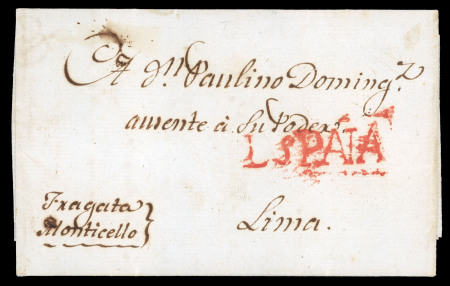 A Dn. Paulino Doming.z
aucente à Su Poder.
ESPAÑA
Fragata
Monticello
Lima.